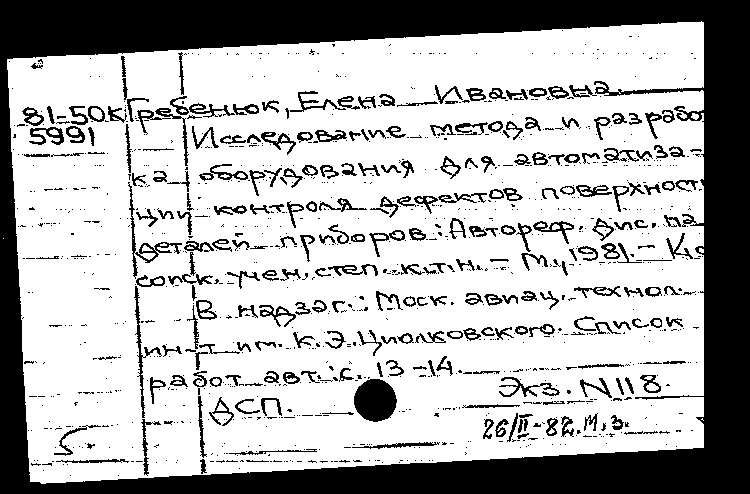 81-50к Гребенюк, Елена Ивановна.
5991 Исследование метода и разработ
ка оборудования для автоматиза-
ции контроля дефектов поверхност
деталей приборов: Автореф. дис. на
соиск. учен. степ. к.т.н. - М., 1981. -
В надзаг.: Моск. авиац. технол.
ин-т им. К.Э. Циолковского. Список
работ авт.: с. 13-14.
ДСП. Экз. N 118.
26/II-82. М.З.